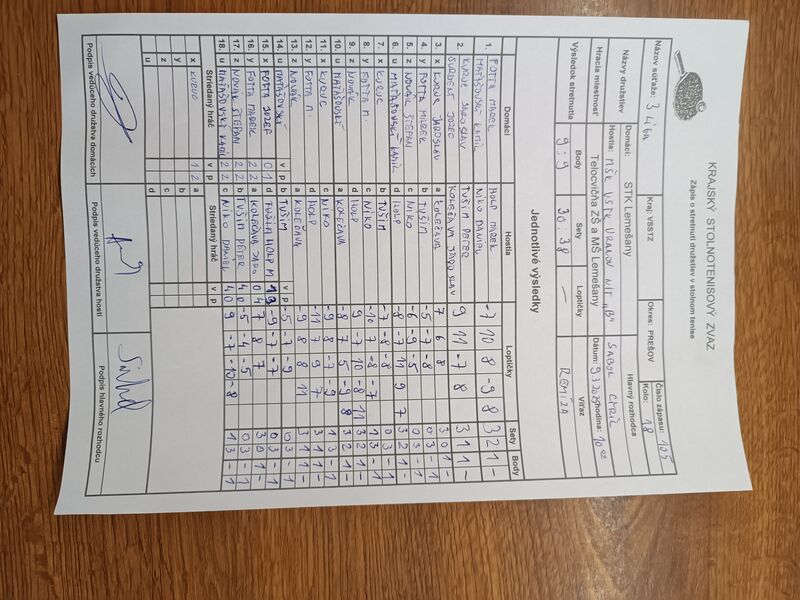 KRAJSKÝ STOLNOTENISOVÝ ZVÄZ
Zápis o stretnutí družstiev v stolnom tenise
Názov súťaže: 3 liga Kraj: VSSTZ Okres: PREŠOV Číslo zápasu: 105
Kolo: 18
Názvy družstiev Domáci: STK Lemešany Hlavný rozhodca
Hostia: MŠK VSTK VRANOV N/T "B" SABOL CYRIL
Hracia miestnosť Telocvičňa ZŠ a MŠ Lemešany Dátum: 9.3.2025 hodina: 10:00
Výsledok stretnutia Body Sety Loptičky Víťaz
9:9 30:38 — REMÍZA
Jednotlivé výsledky
Domáci Hostia Loptičky Sety Body
1. FOTTA MAREK HOLP MAREK -7 10 8 -9 8 3 2 1 -
MATAŠOVSKÝ KAMIL NIKO DANIEL
2. KURUC JAROSLAV TUŠIM PETER 9 11 -7 8 3 1 1 -
JOZEF KOLEČAVA JAROSLAV
3. x KURUC JAROSLAV a KOLEČAVA 7 6 8 3 0 1 -
4. y FOTTA MAREK b TUŠIM -5 -7 -8 0 3 - 1
5. z NOVÁK ŠTEFAN c NIKO -6 -9 -5 0 3 - 1
6. u MATAŠOVSKÝ KAMIL d HOLP -8 -7 11 9 7 3 2 1 -
7. x KURUC b TUŠIM -7 -8 -8 0 3 - 1
8. y FOTTA M. c NIKO -10 7 -8 -7 1 3 - 1
9. z NOVÁK d HOLP 9 -7 10 -8 11 3 2 1 -
10. u MATAŠOVSKÝ a KOLEČAVA -8 7 5 -9 8 3 2 1 -
11. x KURUC c NIKO -9 8 -7 -9 1 3 - 1
12. y FOTTA M. d HOLP -11 7 9 7 3 1 1 -
13. z NOVÁK a KOLEČAVA -9 8 8 11 3 1 1 -
14. u MATAŠOVSKÝ v p b TUŠIM v p -5 -7 -9 0 3 - 1
15. x FOTTA JOZEF 0 1 d HOLP M -9 -7 -7 0 3 - 1
16. y FOTTA MAREK 2 2 a KOLEČAVA JARO 0 4 7 8 7 3 0 1 -
17. z NOVÁK ŠTEFAN 2 2 b TUŠIM PETER 4 0 -5 -4 -5 0 3 - 1
18. u MATAŠOVSKÝ KAMIL 2 2 c NIKO DANIEL 4 0 9 -7 -10 -8 1 3 - 1
Striedaný hráč v p Striedaný hráč v p
x KURUC 1 2 a
y b
z c
u d
Podpis vedúceho družstva domácich Podpis vedúceho družstva hostí Podpis hlavného rozhodcu